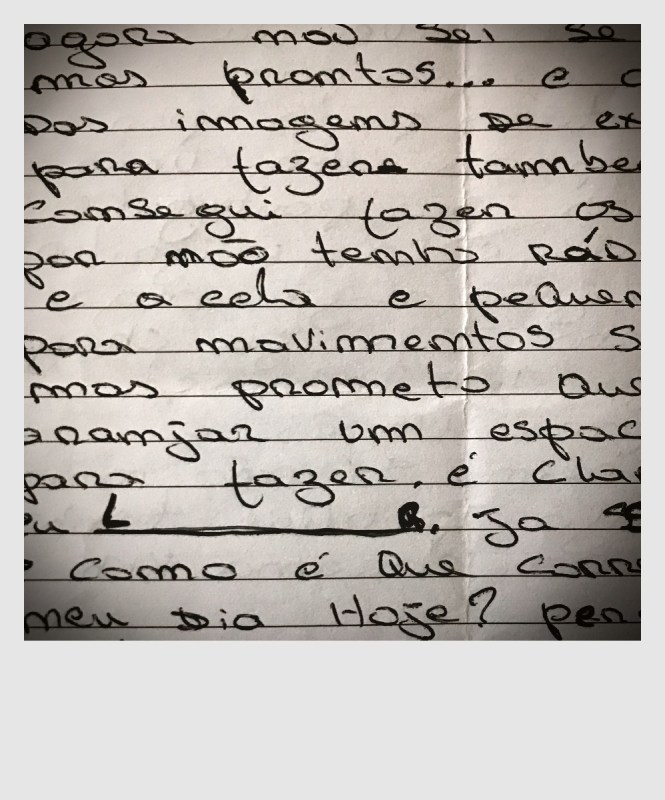 agora não sei se
mas prontos... e
Das imagens De ex
para fazer tambe
comsegui fazer os
por não tenho Rád
e a cela e pequen
para movimentos s
mas prometo Que
aramjar um espac
para fazer. é Cla
eu L B. Ja
Como é Que corre
meu Dia Hoje? per